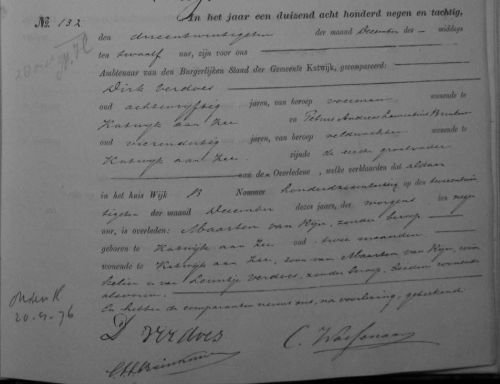 No. 132
In het jaar een duizend acht honderd negen en tachtig,
den drieentwintigsten der maand December des middags
ten twaalf ure, zijn voor ons
Ambtenaar van den Burgerlijken Stand der Gemeente Katwijk, gecompareerd:
Dirk Verdoes
oud achtenvijftig jaren, van beroep voerman, wonende te
Katwijk aan Zee en Petrus Andreas
oud vierendertig jaren, van beroep veldwachter wonende te
Katwijk aan Zee, zijnde de eerste grootvader
van den Overledene, welke verklaarden dat aldaar
in het huis Wijk B Nommer op den tweeentwin
tigsten der maand December dezes jaars, des morgens ten negen
ure, is overleden: Maarten van Rijn, zonder beroep
geboren te Katwijk aan Zee oud twee maanden
wonende te Katwijk aan Zee, zoon van Maarten van Rijn,
en van Leuntje Verdoes, zonder beroep, beiden wonende
aldaar.
En hebben de comparanten nevens ons, na voorlezing, geteekend
D Verdoes
C.
20-4-76